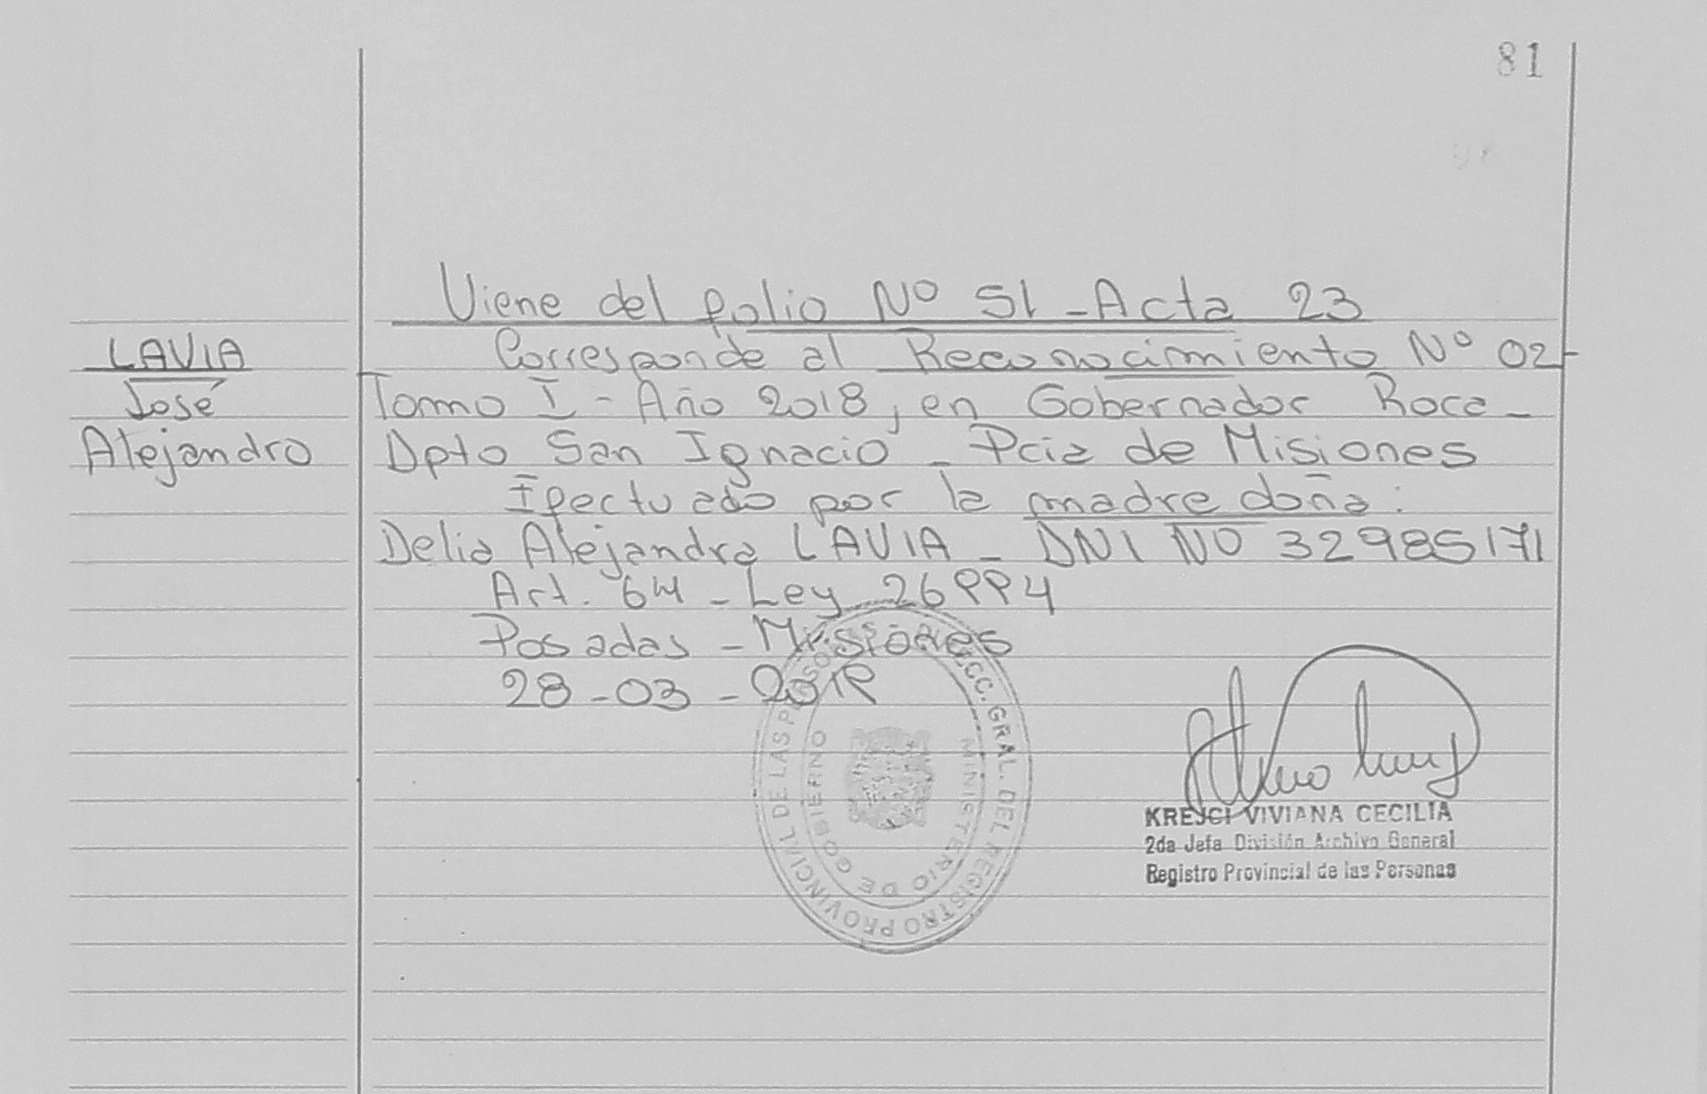 81
Viene del folio Nº 51 - Acta 23
LAVIA
Corresponde al Reconocimiento Nº 02-
José
Tomo I - Año 2018, en Gobernador Roca -
Alejandro
Dpto San Ignacio - Pcia de Misiones
Efectuado por la madre doña:
Delia Alejandra LAVIA - DNI Nº 32985171
Art. 64 - Ley 26994
Posadas - Misiones
28-03-2019
DIRECC. GRAL. DEL REGISTRO PROVINCIAL DE LAS PERSONAS
MINISTERIO DE GOBIERNO
KREJCI VIVIANA CECILIA
2da Jefa División Archivo General
Registro Provincial de las Personas